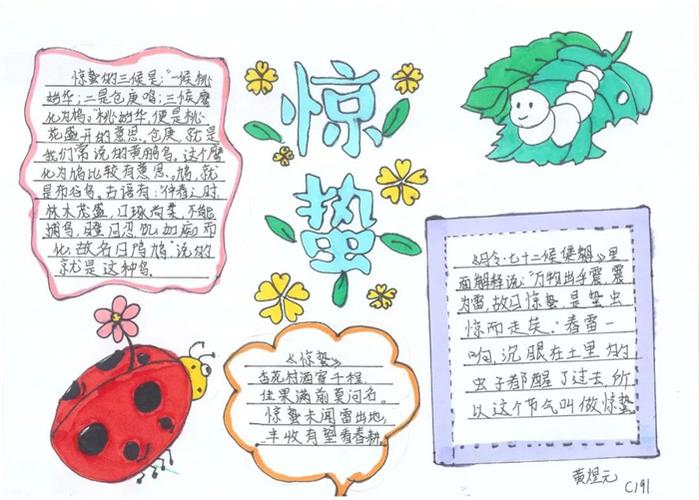 惊蛰
惊蛰的三候是:"一候桃
始华;二是仓庚鸣;三候鹰
化为鸠。"桃始华,便是桃
花盛开的意思。仓庚,就是
我们常说的黄鹂鸟。这个鹰
化为鸠比较有意思。鸠,就
是布谷鸟。古语有:"仲春之时
林木茂盛,口啄尚柔,不能
捕鸟,瞪目忍饥,如痴而
化,故名曰鸤鸠"说的
就是这种鸟。
《月令·七十二候集解》里
面解释说:"万物出乎震,震
为雷,故曰惊蛰,是蛰虫
惊而走矣。"春雷一
响,沉眠在土里的
虫子都醒了过去,所
以这个节气叫做惊蛰
《惊蛰》
杏花村酒寄千程,
佳果满前莫问名。
惊蛰未闻雷出地,
丰收有望看春耕
黄煜元
C191